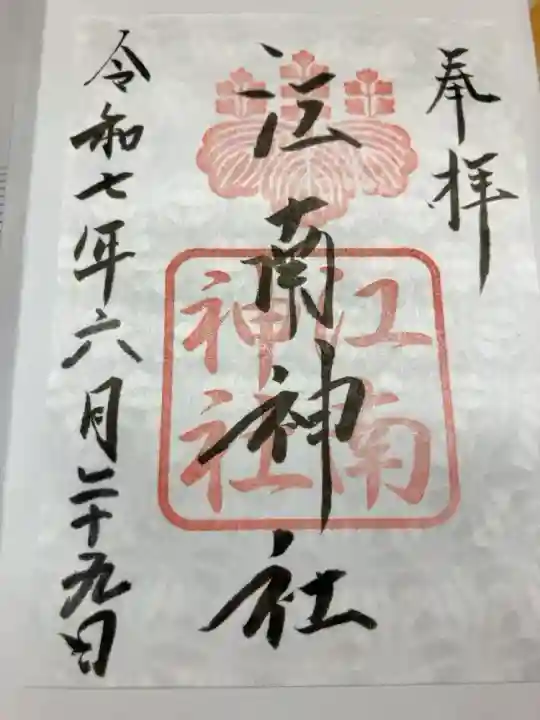 奉拝
江南神社
江南
神社
令和七年六月二十九日